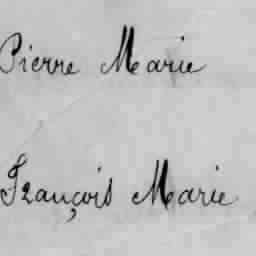 Pierre Marie
François Marie